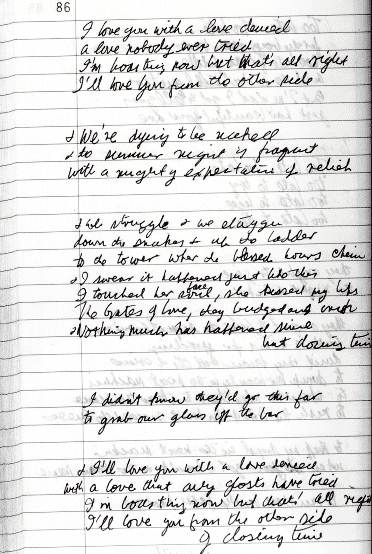 86
I love you with a love denied
a love nobody ever tried
I'm boasting now but that's all right
I'll love you from the other side
& We're dying to be
& the summer night is fragrant
with a mighty expectation of relief
& we struggle & we stagger
down the snakes & up the ladder
to the tower where the blessed hours chime
& I swear it happened just like this
I touched her face, she kissed my lips
The Gates of Love, they budged an inch
& Nothing much has happened since
but closing time
I didn't know they'd go this far
to grab our glass off the bar
& I'll love you with a love
with a love that only ghosts have tried
I'm boasting now but that's all right
I'll love you from the other side
of closing time